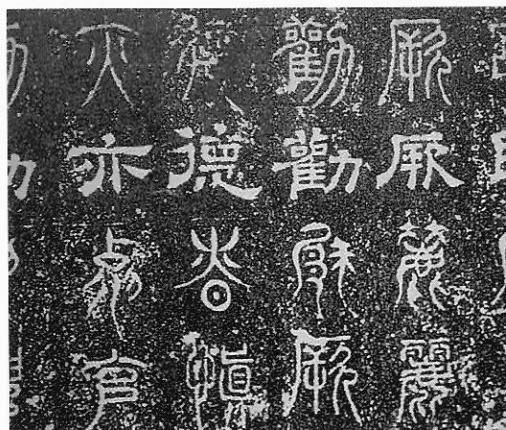 厥厥麗麗
勸勸厥厥
德德慎慎
亦亦克克